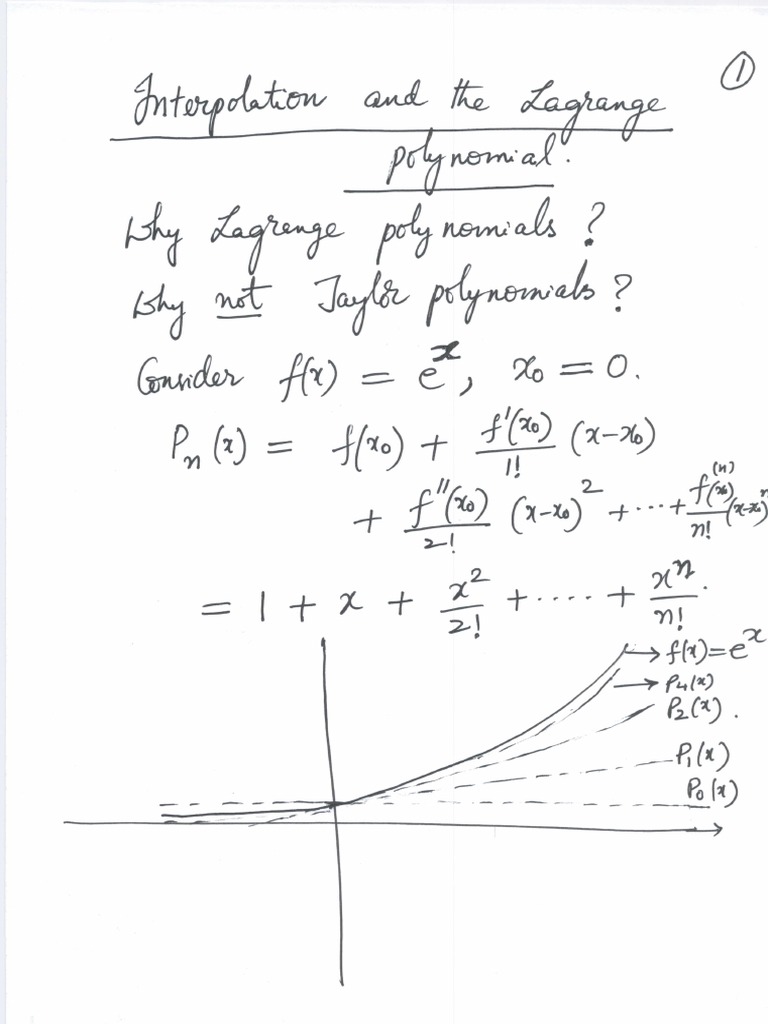 ①
Interpolation and the Lagrange
polynomial.
Why Lagrange polynomials?
Why not Taylor polynomials?
Consider f(x) = e^x, x₀ = 0.
Pₙ(x) = f(x₀) + f'(x₀)/1! (x-x₀)
+ f''(x₀)/2! (x-x₀)² + ... + f^(n)(x₀)/n! (x-x₀)^n
= 1 + x + x²/2! + .... + x^n/n!.
→ f(x) = e^x
→ P₄(x)
P₂(x).
P₁(x)
P₀(x)